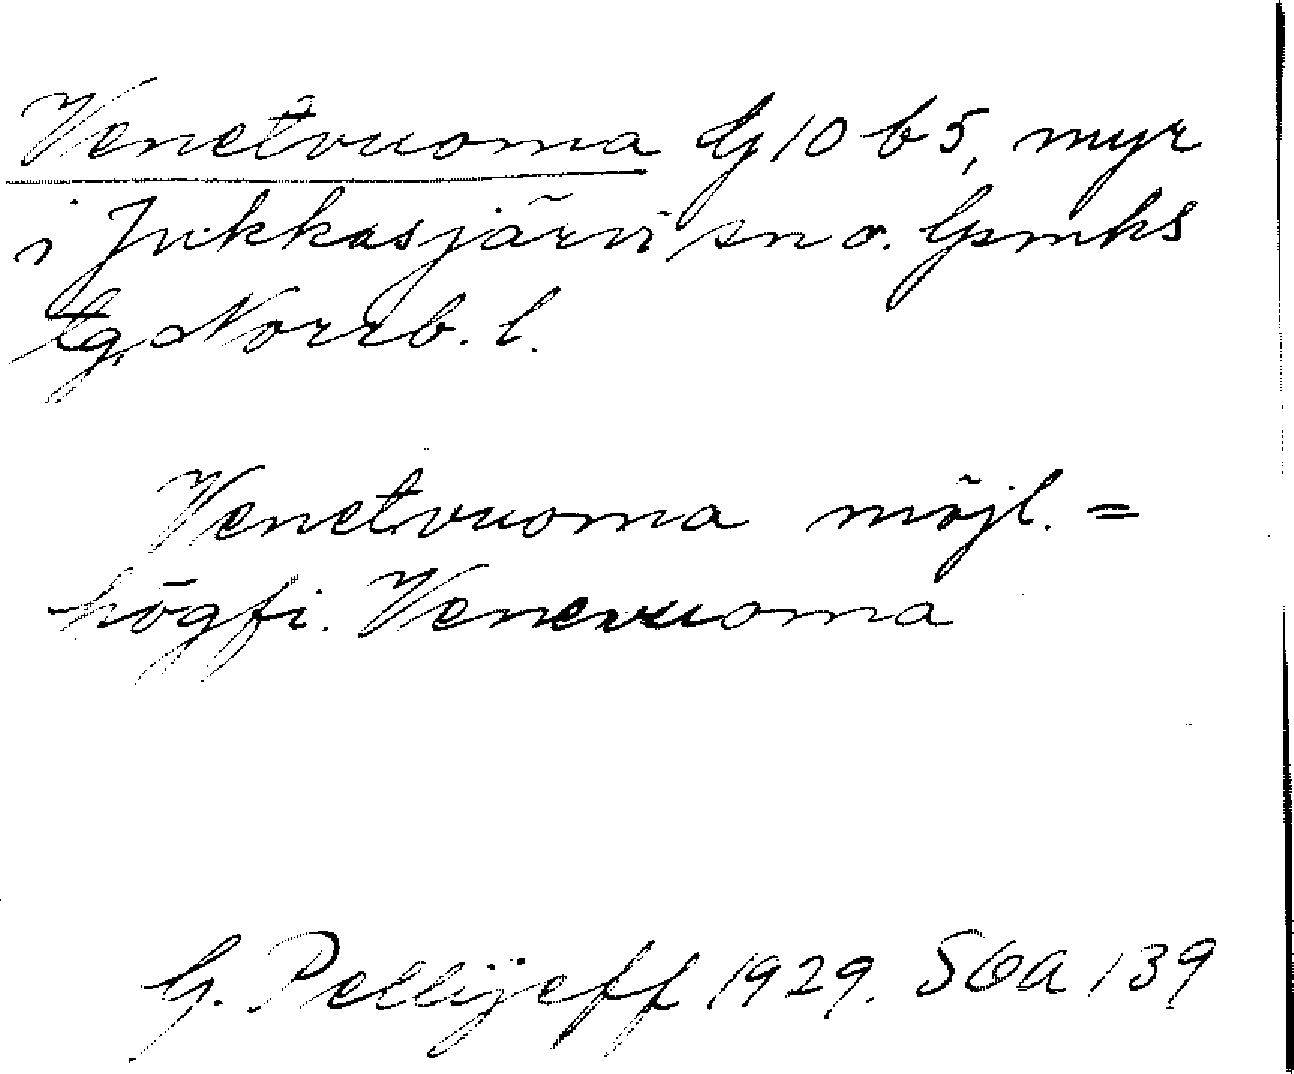 Venetvuoma G 10 b 5, myr
i Jukkasjärvi sn o. Gsmks
tg, Norrb. l.
Venetvuoma möjl. =
högfi. Venevuoma
G. Pellijeff 1929. SOA 139